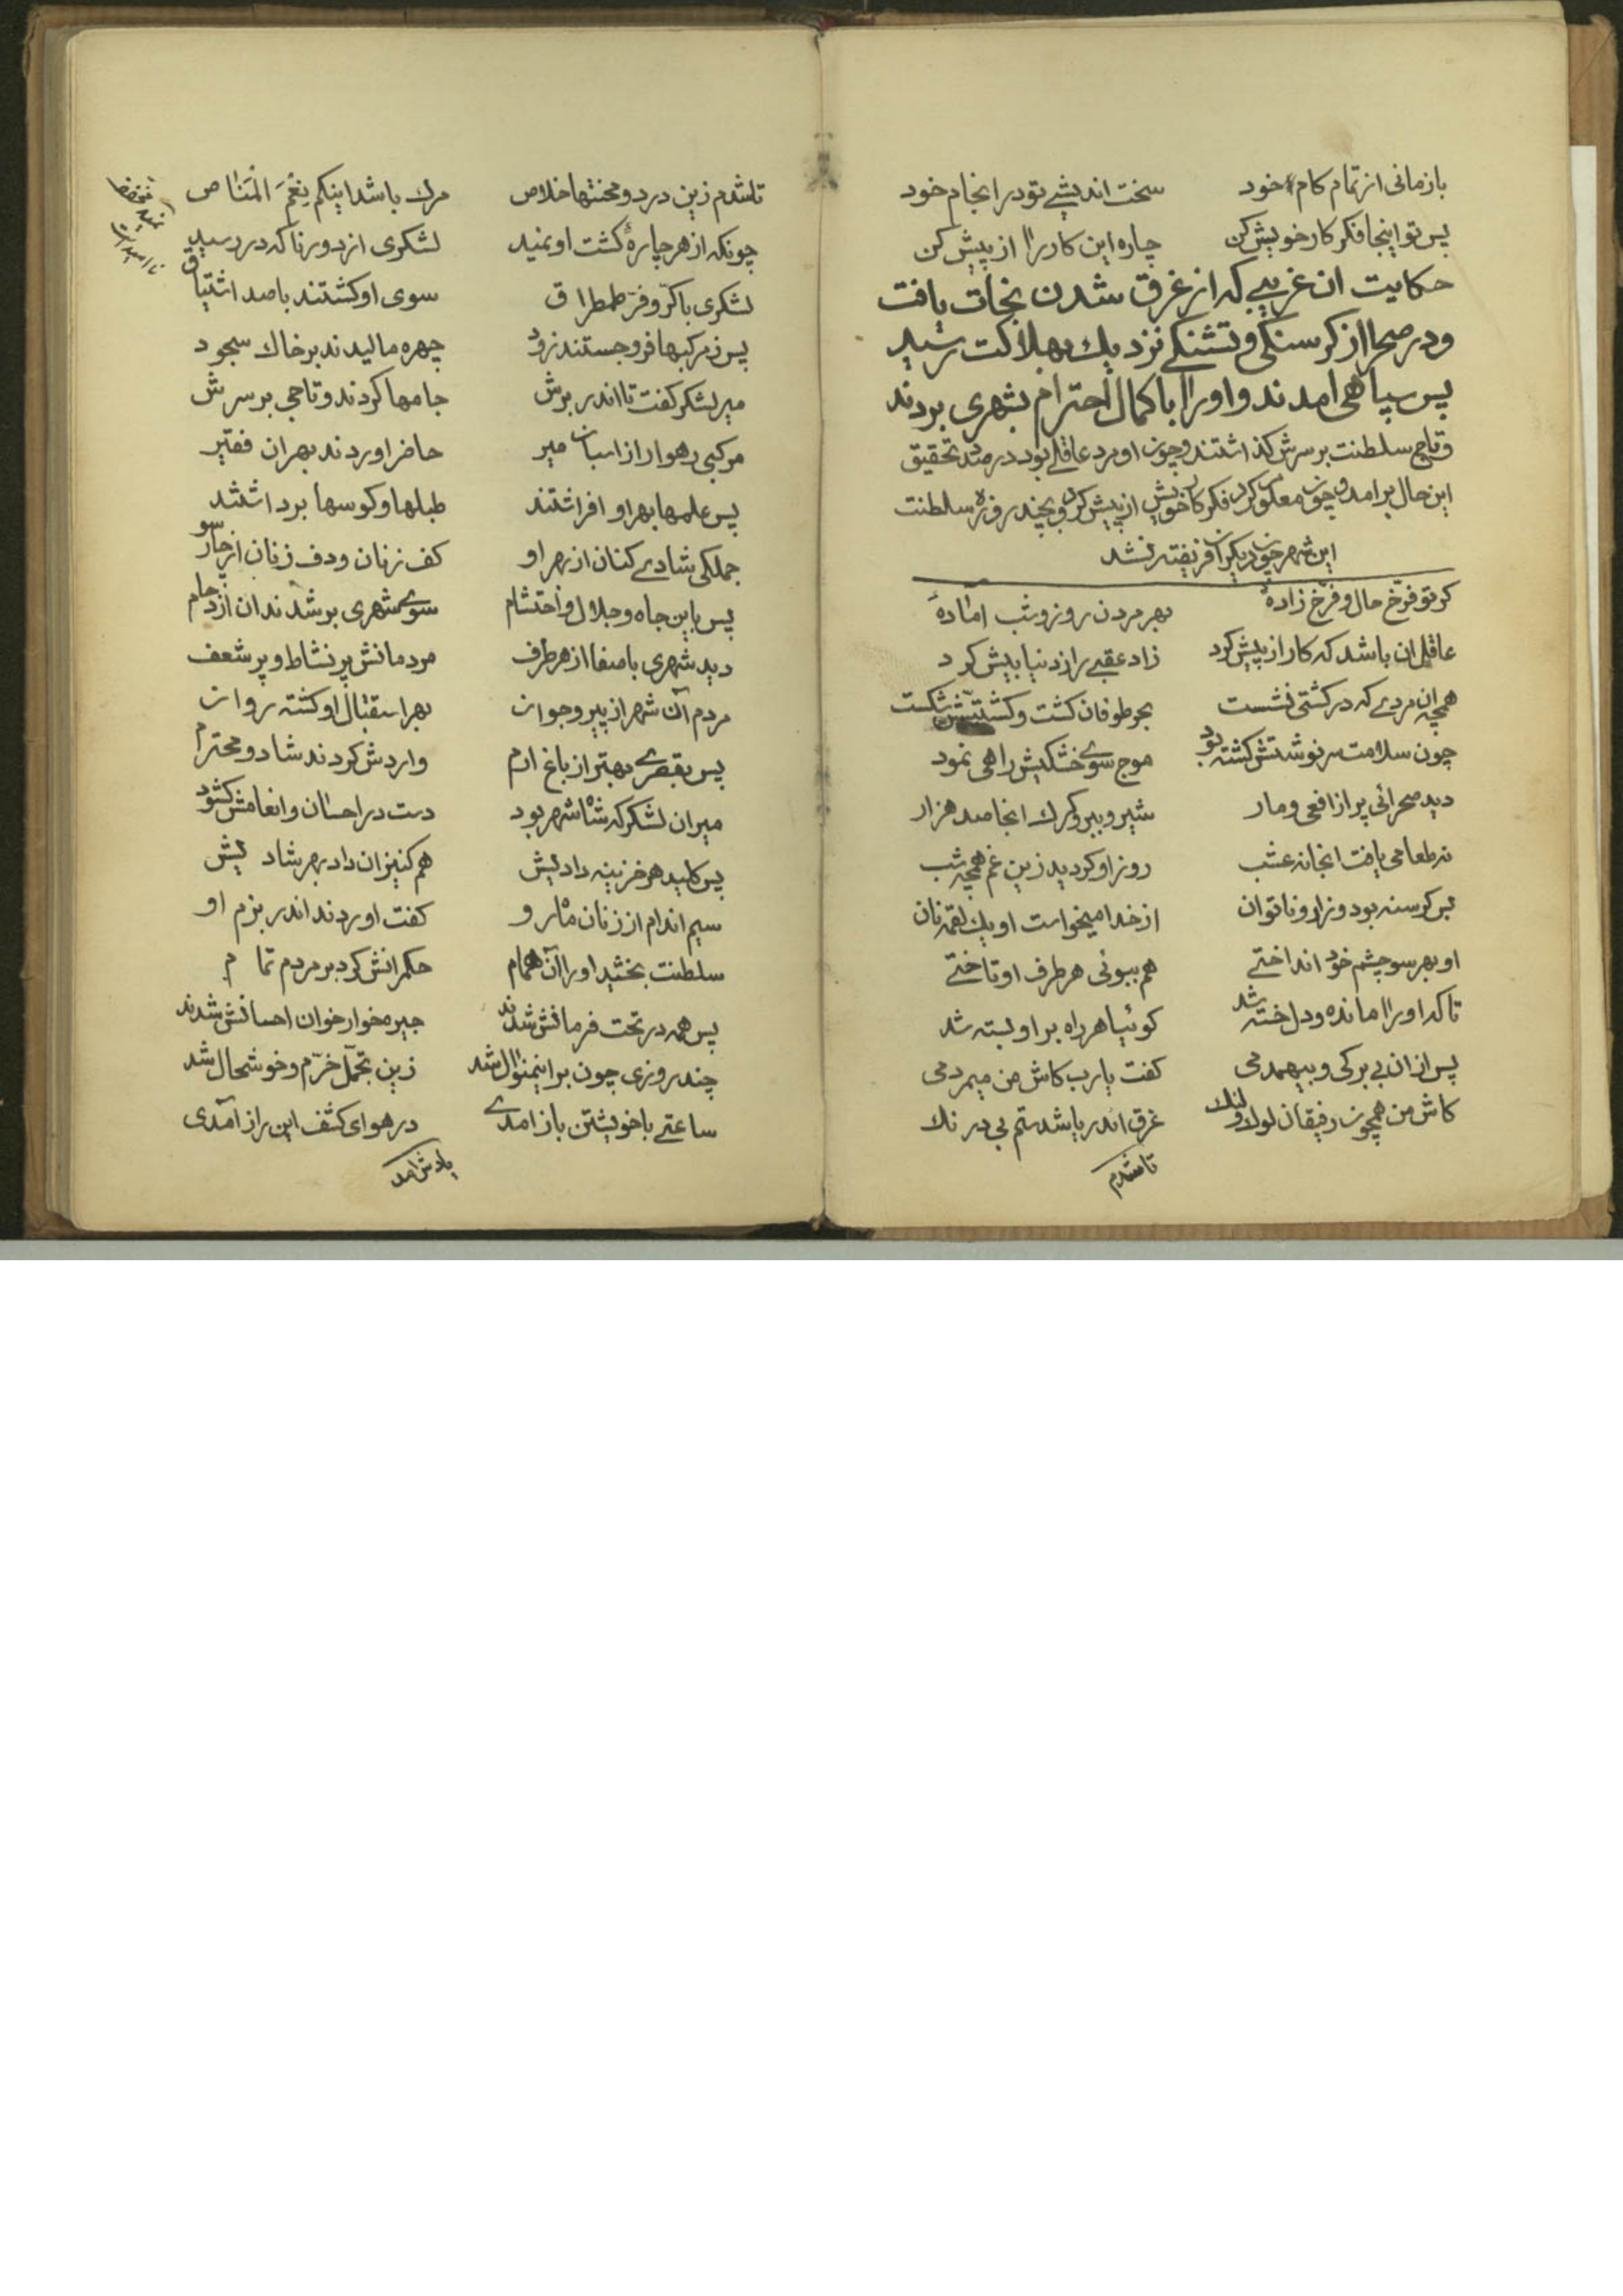 بازمانی از تمام کام خود سخت اندیشی تو در انجام خود
پس تو اینجا فکر کار خویش کن چاره این کار را از پیش کن
حکایت ان غریبی که از غرق شدن نجات یافت
و در صحرا از کرسنکی و تشنکی نزدیک بهلاکت رسید
پس سپاهی امدند و اورا با کمال احترام بشهری بردند
و تاج سلطنت بر سرش کذاشتند و چون او مرد عاقلی بود در صدد تحقیق
این حال بر امد و چون معلوم کرد فکر کار خویش از پیش کرد و بچند روزه سلطنت
این شهر چون دیکران فریفته نشد
کر تو فرّخ حال و فرّخ زادهٔ بهر مردن روز و شب امادهٔ
عاقل ان باشد که کار از پیش کرد زاد عقبی را ز دنیا بیش کرد
همچه ان مردی که در کشتی نشست بحر طوفان کشت و کشتیش شکست
چون سلامت سرنوشتش کشته بود موج سوی خشکیش راهی نمود
دید صحرائی پر از افعی و مار شیر و ببر و کرک انجا صد هزار
نه طعامی یافت انجا نه عشب روز او کردید زین غم همچه شب
بس کرسنه بود و زار و ناتوان از خدا میخواست او یک لقمه نان
او بهر سو چشم خود انداختی هم ببوئی هر طرف او تاختی
تا که او را مانده و دل خسته شد کوئیا هر راه بر او بسته شد
پس از ان بی برکی و بیهمدمی کفت یارب کاش من میمردمی
کاش من همچون رفیقان لولا و لنک غرق اندر یا شدستم بی درنک
تا شدم
تا شدم زین درد و محنتها خلاص مرک باشد اینکم نِعْمَ الْمَنٰاص
چونکه از هر چارهٔ کشت او نمید لشکری از دور ناکه در رسید
لشکری با کرّ و فرّ طمطراق سوی او کشتند با صد اشتیاق
پس ز مرکبها فرو جستند زود چهره مالیدند بر خاک سجود
میر لشکر کفت تا اندر برش جامها کردند و تاجی بر سرش
مرکبی رهوار از اسبان میر حاضر اوردند بهر ان فقیر
پس علمها بهر او افراشتند طبلها و کوسها برداشتند
جملکی شادی کنان از بهر او کف زنان و دف زنان از چار سو
پس باین جاه و جلال و احتشام سوی شهری بر شدند ان ازدحام
دید شهری با صفا از هر طرف مردمانش پر نشاط و پر شعف
مردم آن شهر از پیر و جوان بهر استقبال او کشته روان
پس بقصری بهتر از باغ ارم واردش کردند شاد و محترم
میر ان لشکر که شاه شهر بود دست در احسان و انعامش کشود
پس کلید هر خزینه دادیش هم کنیزان داد بهر شادیش
سیم اندام از زنان ماه رو کفت اوردند اندر بزم او
سلطنت بخشید اورا آن همام حکمرانش کرد بر مردم تمام
پس همه در تحت فرمانش شدند جیره خوار خوان احسانش شدند
چند روزی چون بر اینمنوال شد زین تجمّل خرّم و خوشحال شد
ساعتی با خویشتن باز امدی در هوای کشف این راز آمدی
یادش امد